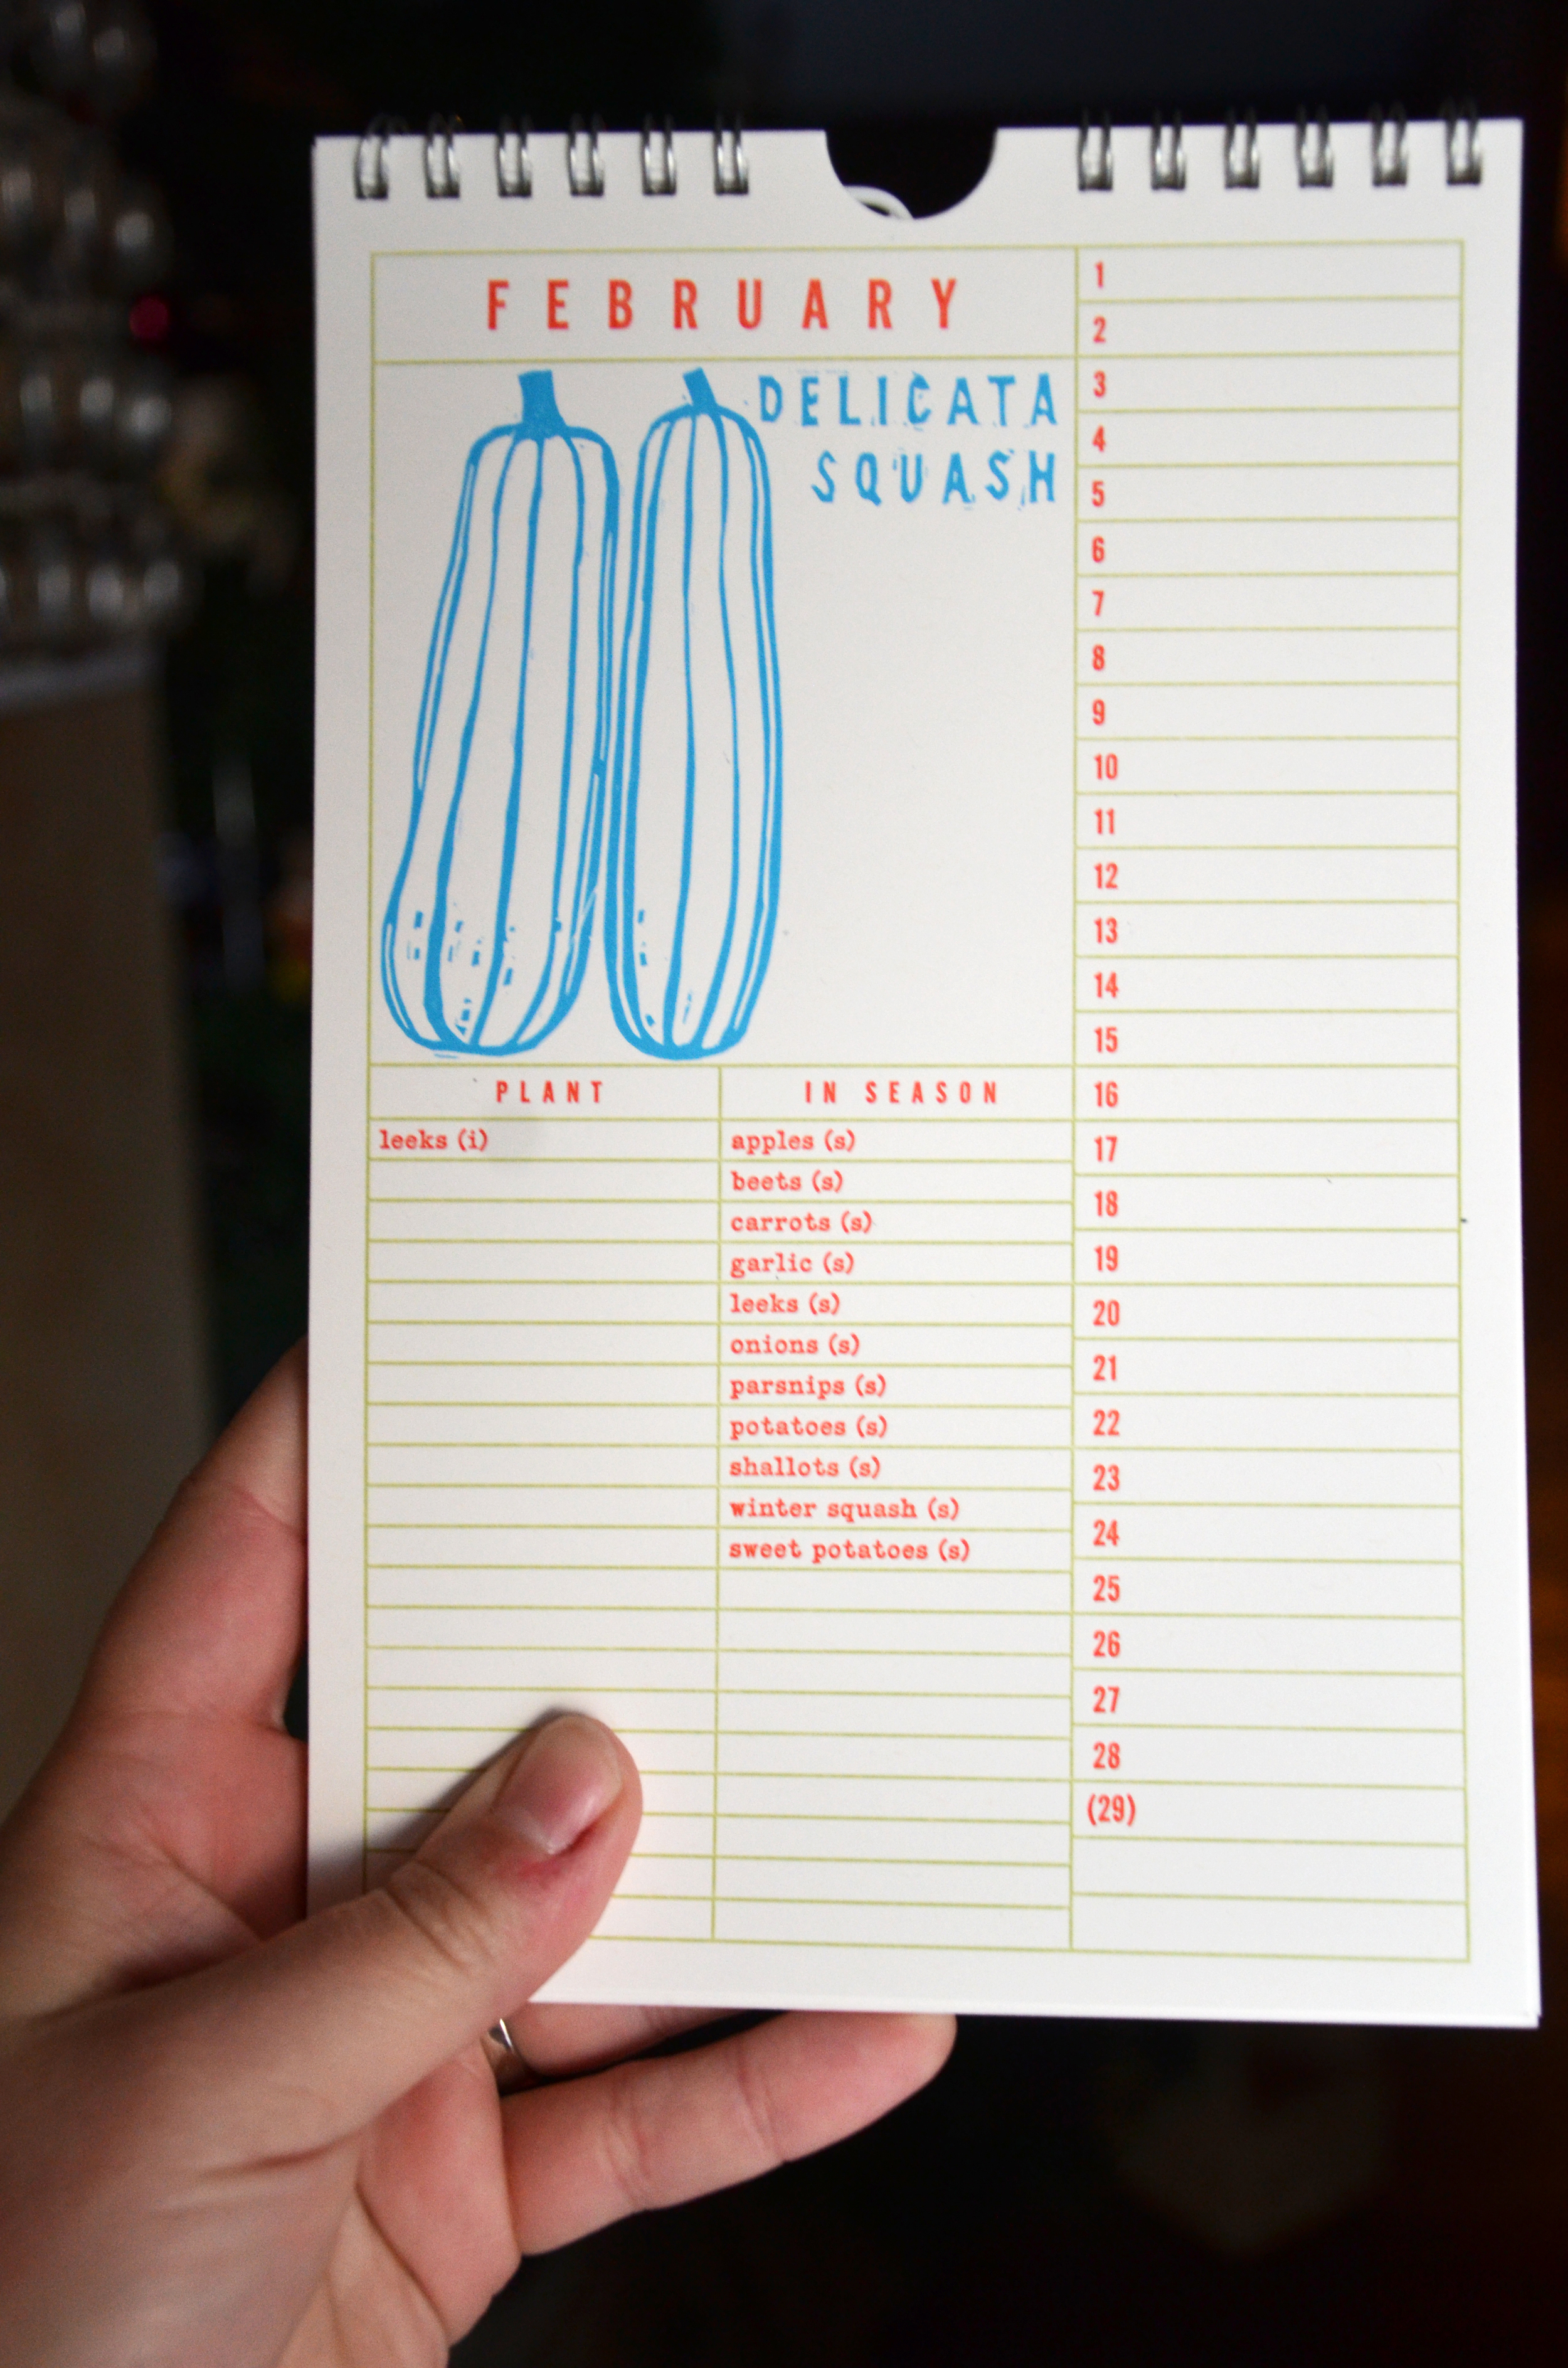 FEBRUARY
DELICATA
SQUASH
PLANT
leeks (i)
IN SEASON
apples (s)
beets (s)
carrots (s)
garlic (s)
leeks (s)
onions (s)
parsnips (s)
potatoes (s)
shallots (s)
winter squash (s)
sweet potatoes (s)
1
2
3
4
5
6
7
8
9
10
11
12
13
14
15
16
17
18
19
20
21
22
23
24
25
26
27
28
(29)